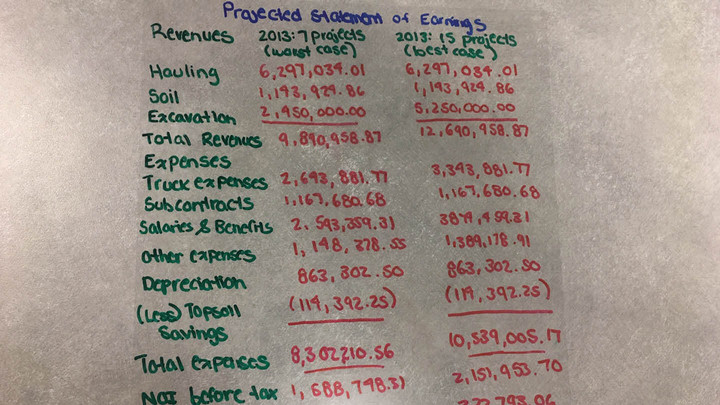 Projected Statement of Earnings
Revenues 2013: 7 projects 2013: 15 projects
(worst case) (best case)
Hauling 6,297,034.01 6,297,034.01
Soil 1,143,924.86 1,143,924.86
Excavation 2,450,000.00 5,250,000.00
Total Revenues 9,890,958.87 12,690,958.87
Expenses
Truck expenses 2,693,881.77 3,343,881.77
Subcontracts 1,167,680.68 1,167,680.68
Salaries & Benefits 2,543,359.31 3874,459.31
other expenses 1,148,378.55 1,389,178.91
Depreciation 863,302.50 863,302.50
(Less) Topsoil (114,392.25) (114,392.25)
Savings
Total expenses 8,302,210.56 10,539,005.17
NOI before tax 1,688,748.31 2,151,953.70
322,793.06